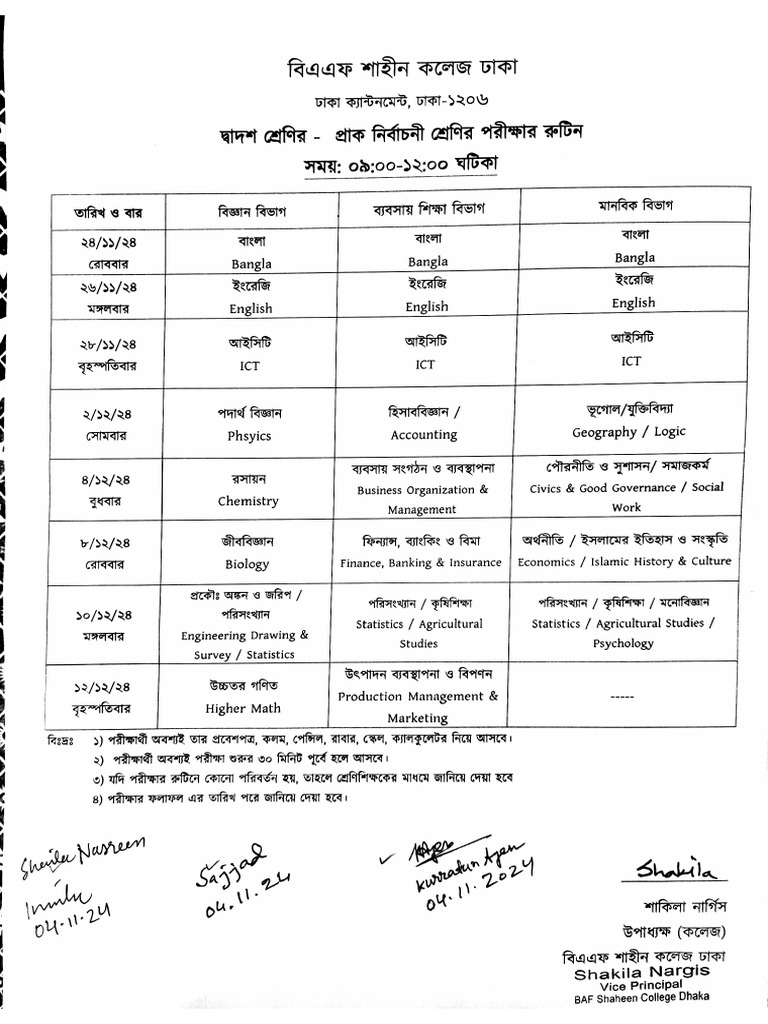 বিএএফ শাহীন কলেজ ঢাকা
ঢাকা ক্যান্টনমেন্ট, ঢাকা-১২০৬
দ্বাদশ শ্রেণির - প্রাক নির্বাচনী শ্রেণির পরীক্ষার রুটিন
সময়: ০৯:০০-১২:০০ ঘটিকা
তারিখ ও বার বিজ্ঞান বিভাগ ব্যবসায় শিক্ষা বিভাগ মানবিক বিভাগ
২৪/১১/২৪ বাংলা বাংলা বাংলা
রোববার Bangla Bangla Bangla
২৬/১১/২৪ ইংরেজি ইংরেজি ইংরেজি
মঙ্গলবার English English English
২৮/১১/২৪ আইসিটি আইসিটি আইসিটি
বৃহস্পতিবার ICT ICT ICT
২/১২/২৪ পদার্থ বিজ্ঞান হিসাববিজ্ঞান / ভূগোল/যুক্তিবিদ্যা
সোমবার Phsyics Accounting Geography / Logic
৪/১২/২৪ রসায়ন ব্যবসায় সংগঠন ও ব্যবস্থাপনা পৌরনীতি ও সুশাসন/ সমাজকর্ম
বুধবার Chemistry Business Organization & Civics & Good Governance / Social
Management Work
৮/১২/২৪ জীববিজ্ঞান ফিন্যান্স, ব্যাংকিং ও বিমা অর্থনীতি / ইসলামের ইতিহাস ও সংস্কৃতি
রোববার Biology Finance, Banking & Insurance Economics / Islamic History & Culture
প্রকৌঃ অঙ্কন ও জরিপ /
১০/১২/২৪ পরিসংখ্যান পরিসংখ্যান / কৃষিশিক্ষা পরিসংখ্যান / কৃষিশিক্ষা / মনোবিজ্ঞান
মঙ্গলবার Engineering Drawing & Statistics / Agricultural Statistics / Agricultural Studies /
Survey / Statistics Studies Psychology
১২/১২/২৪ উচ্চতর গণিত উৎপাদন ব্যবস্থাপনা ও বিপণন -----
বৃহস্পতিবার Higher Math Production Management &
Marketing
বিঃদ্রঃ ১) পরীক্ষার্থী অবশ্যই তার প্রবেশপত্র, কলম, পেন্সিল, রাবার, স্কেল, ক্যালকুলেটর নিয়ে আসবে।
২) পরীক্ষার্থী অবশ্যই পরীক্ষা শুরুর ৩০ মিনিট পূর্বে হলে আসবে।
৩) যদি পরীক্ষার রুটিনে কোনো পরিবর্তন হয়, তাহলে শ্রেণিশিক্ষকের মাধমে জানিয়ে দেয়া হবে
৪) পরীক্ষার ফলাফল এর তারিখ পরে জানিয়ে দেয়া হবে।
Sheila Nasreen
04-11-24
Sajjad
04.11.24
Kurratun Ayen
04.11.2024
Shakila
শাকিলা নার্গিস
উপাধ্যক্ষ (কলেজ)
বিএএফ শাহীন কলেজ ঢাকা
Shakila Nargis
Vice Principal
BAF Shaheen College Dhaka